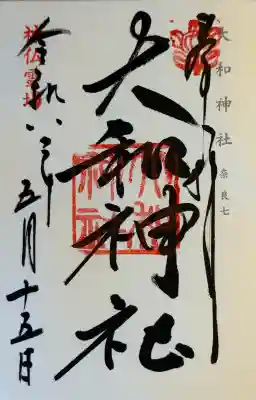 大和神社 奈良七
奉拝
大和神社
神仏霊場
令和 年五月十五日